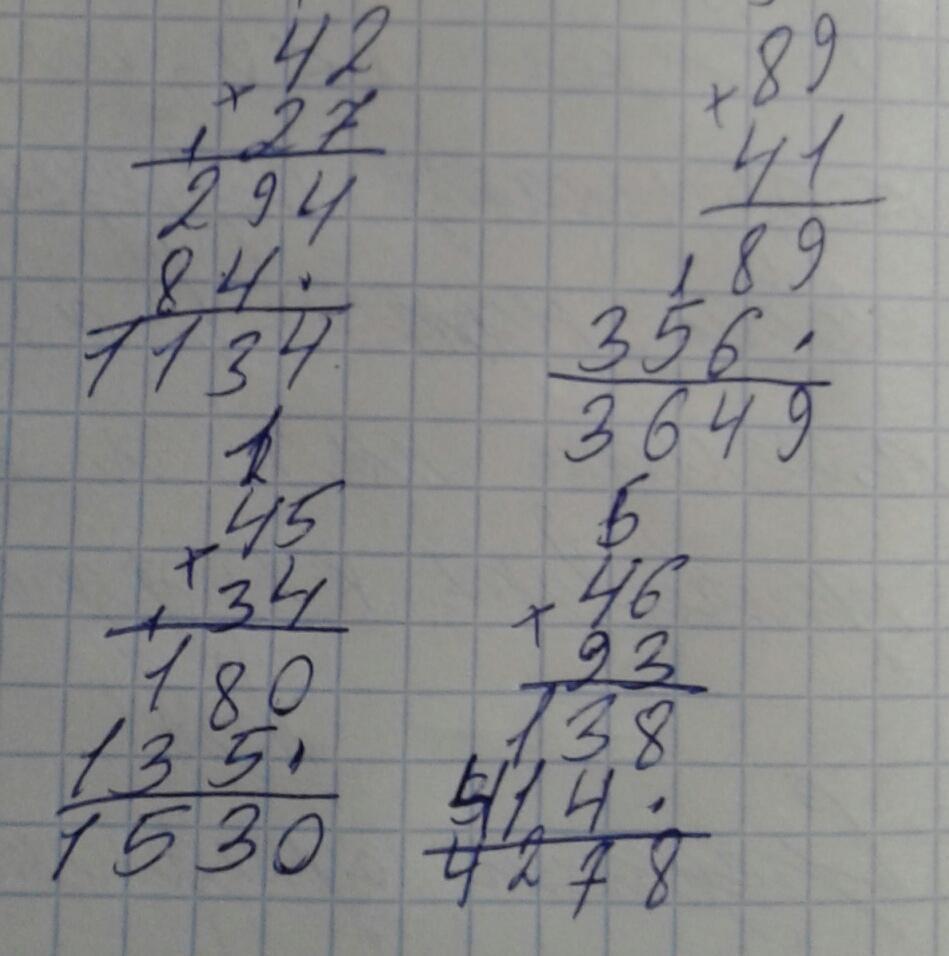 42
× 27
294
84.
1134
89
× 41
89
356.
3649
45
× 34
180
135.
1530
5
46
× 93
138
414.
4278